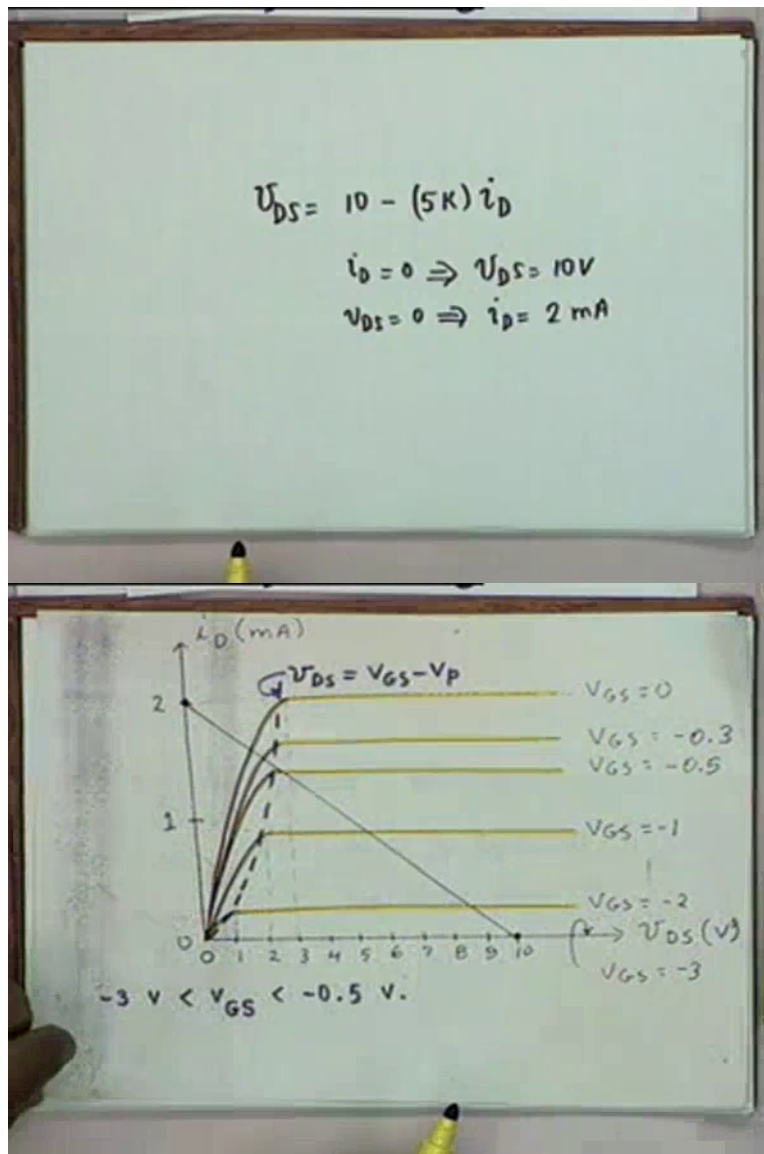 v_DS = 10 - (5K) i_D
i_D = 0 ⇒ v_DS = 10V
v_DS = 0 ⇒ i_D = 2 mA
i_D (mA)
v_DS = V_GS - V_P
2
V_GS = 0
V_GS = -0.3
V_GS = -0.5
1
V_GS = -1
V_GS = -2
0
0 1 2 3 4 5 6 7 8 9 10
v_DS (V)
V_GS = -3
-3 V < V_GS < -0.5 V.